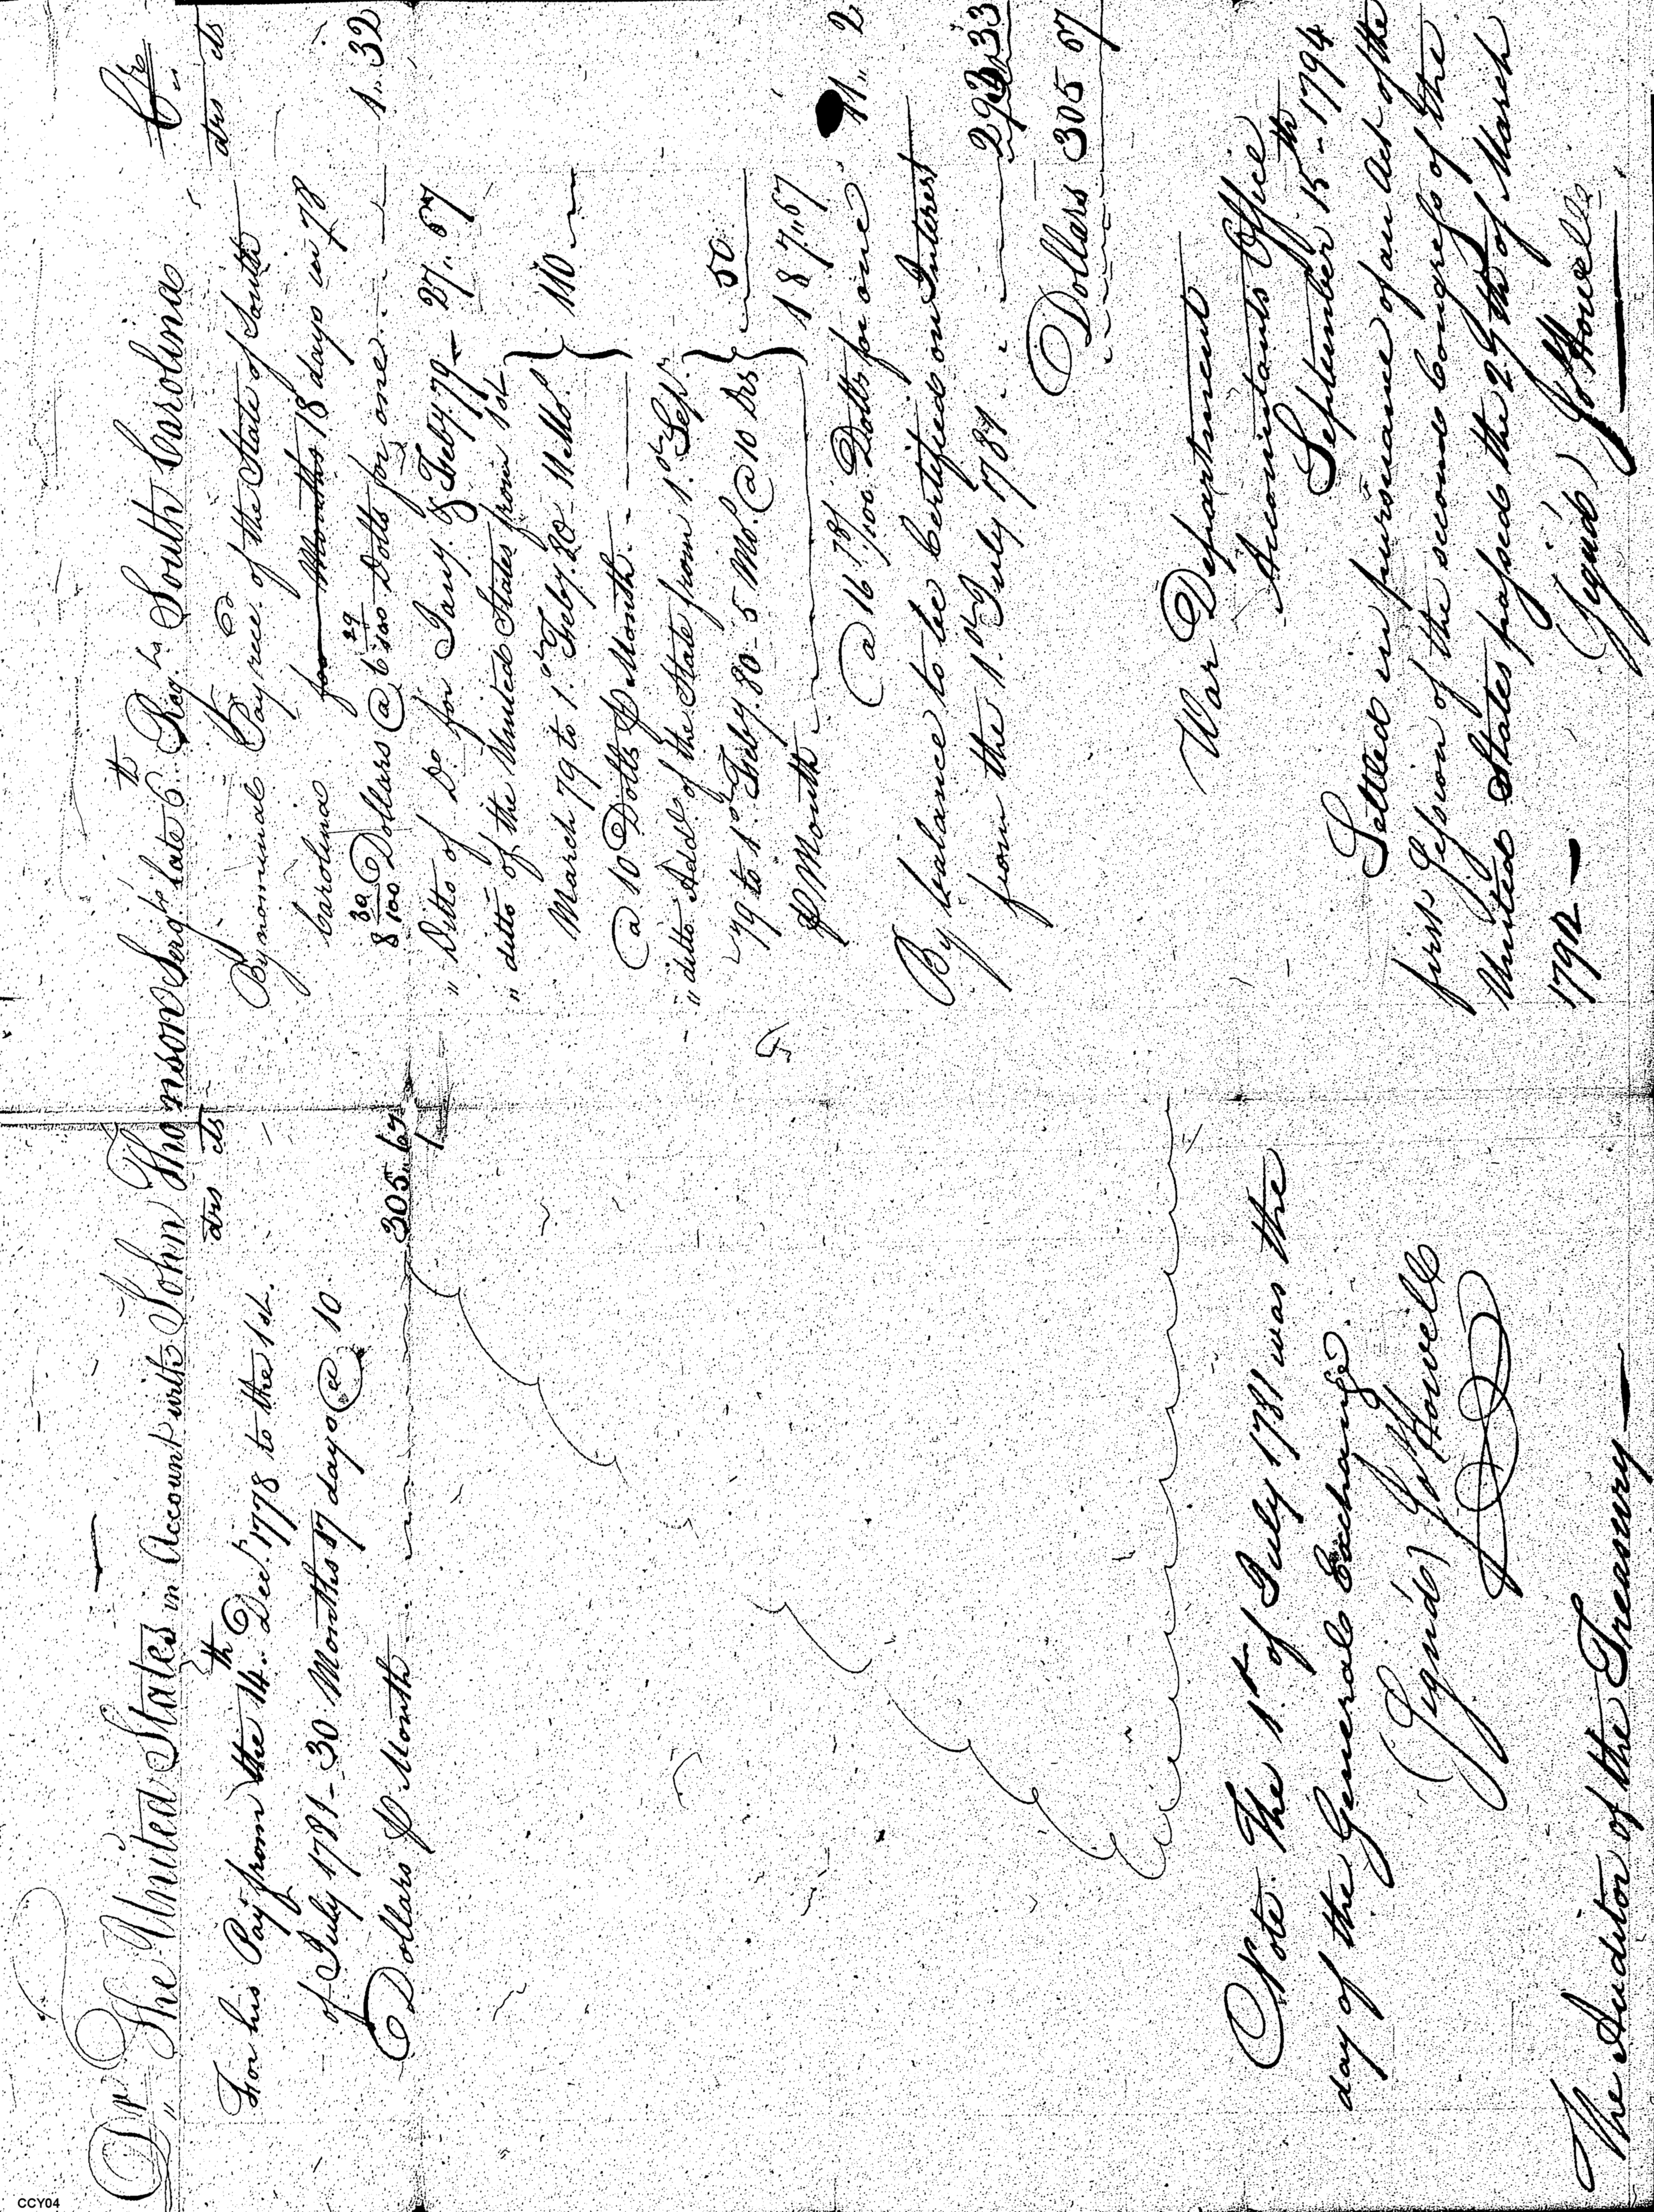 Dr The United States in Account with John Thomson Sergt late 6th Regt South Carolina Cr
drs cts
For his Pay from the 14th Decr 1778 to the 1st
of July 1781 - 30 Months 17 days @ 10
Dollars P Month 305.67
Note. The 1st of July 1781 was the
day of the General Exchange.
(Signd) J Howell
The Auditor of the Treasury
drs cts
By nominal Pay recd of the State of South
Carolina for Months 18 days in 78
8 30/100 Dollars @ 6 29/100 Dolls for one 1.. 32
" Ditto of Do for Jany & Feby 79 - 27.. 67
" ditto of the United States from 1st
March 79 to 1st Feby 80 - 11 Mo. } 110
@ 10 Dolls P Month
" ditto Add of the State from 1st Sepr
79 to 1st Feby 80 - 5 Mo. @ 10 Drs } 50
P Month
187..67
@ 16 78/100 Dolls for one 11.. 2
By balance to be Certified on Interest
from the 1st July 1781 293 33
Dollars 305 67
War Department
Accountants Office
September 15th 1794
Settled in pursuance of an Act of the
first Session of the second Congress of the
United States passed the 27th of March
1792
(Signd) J Howell
CCY04